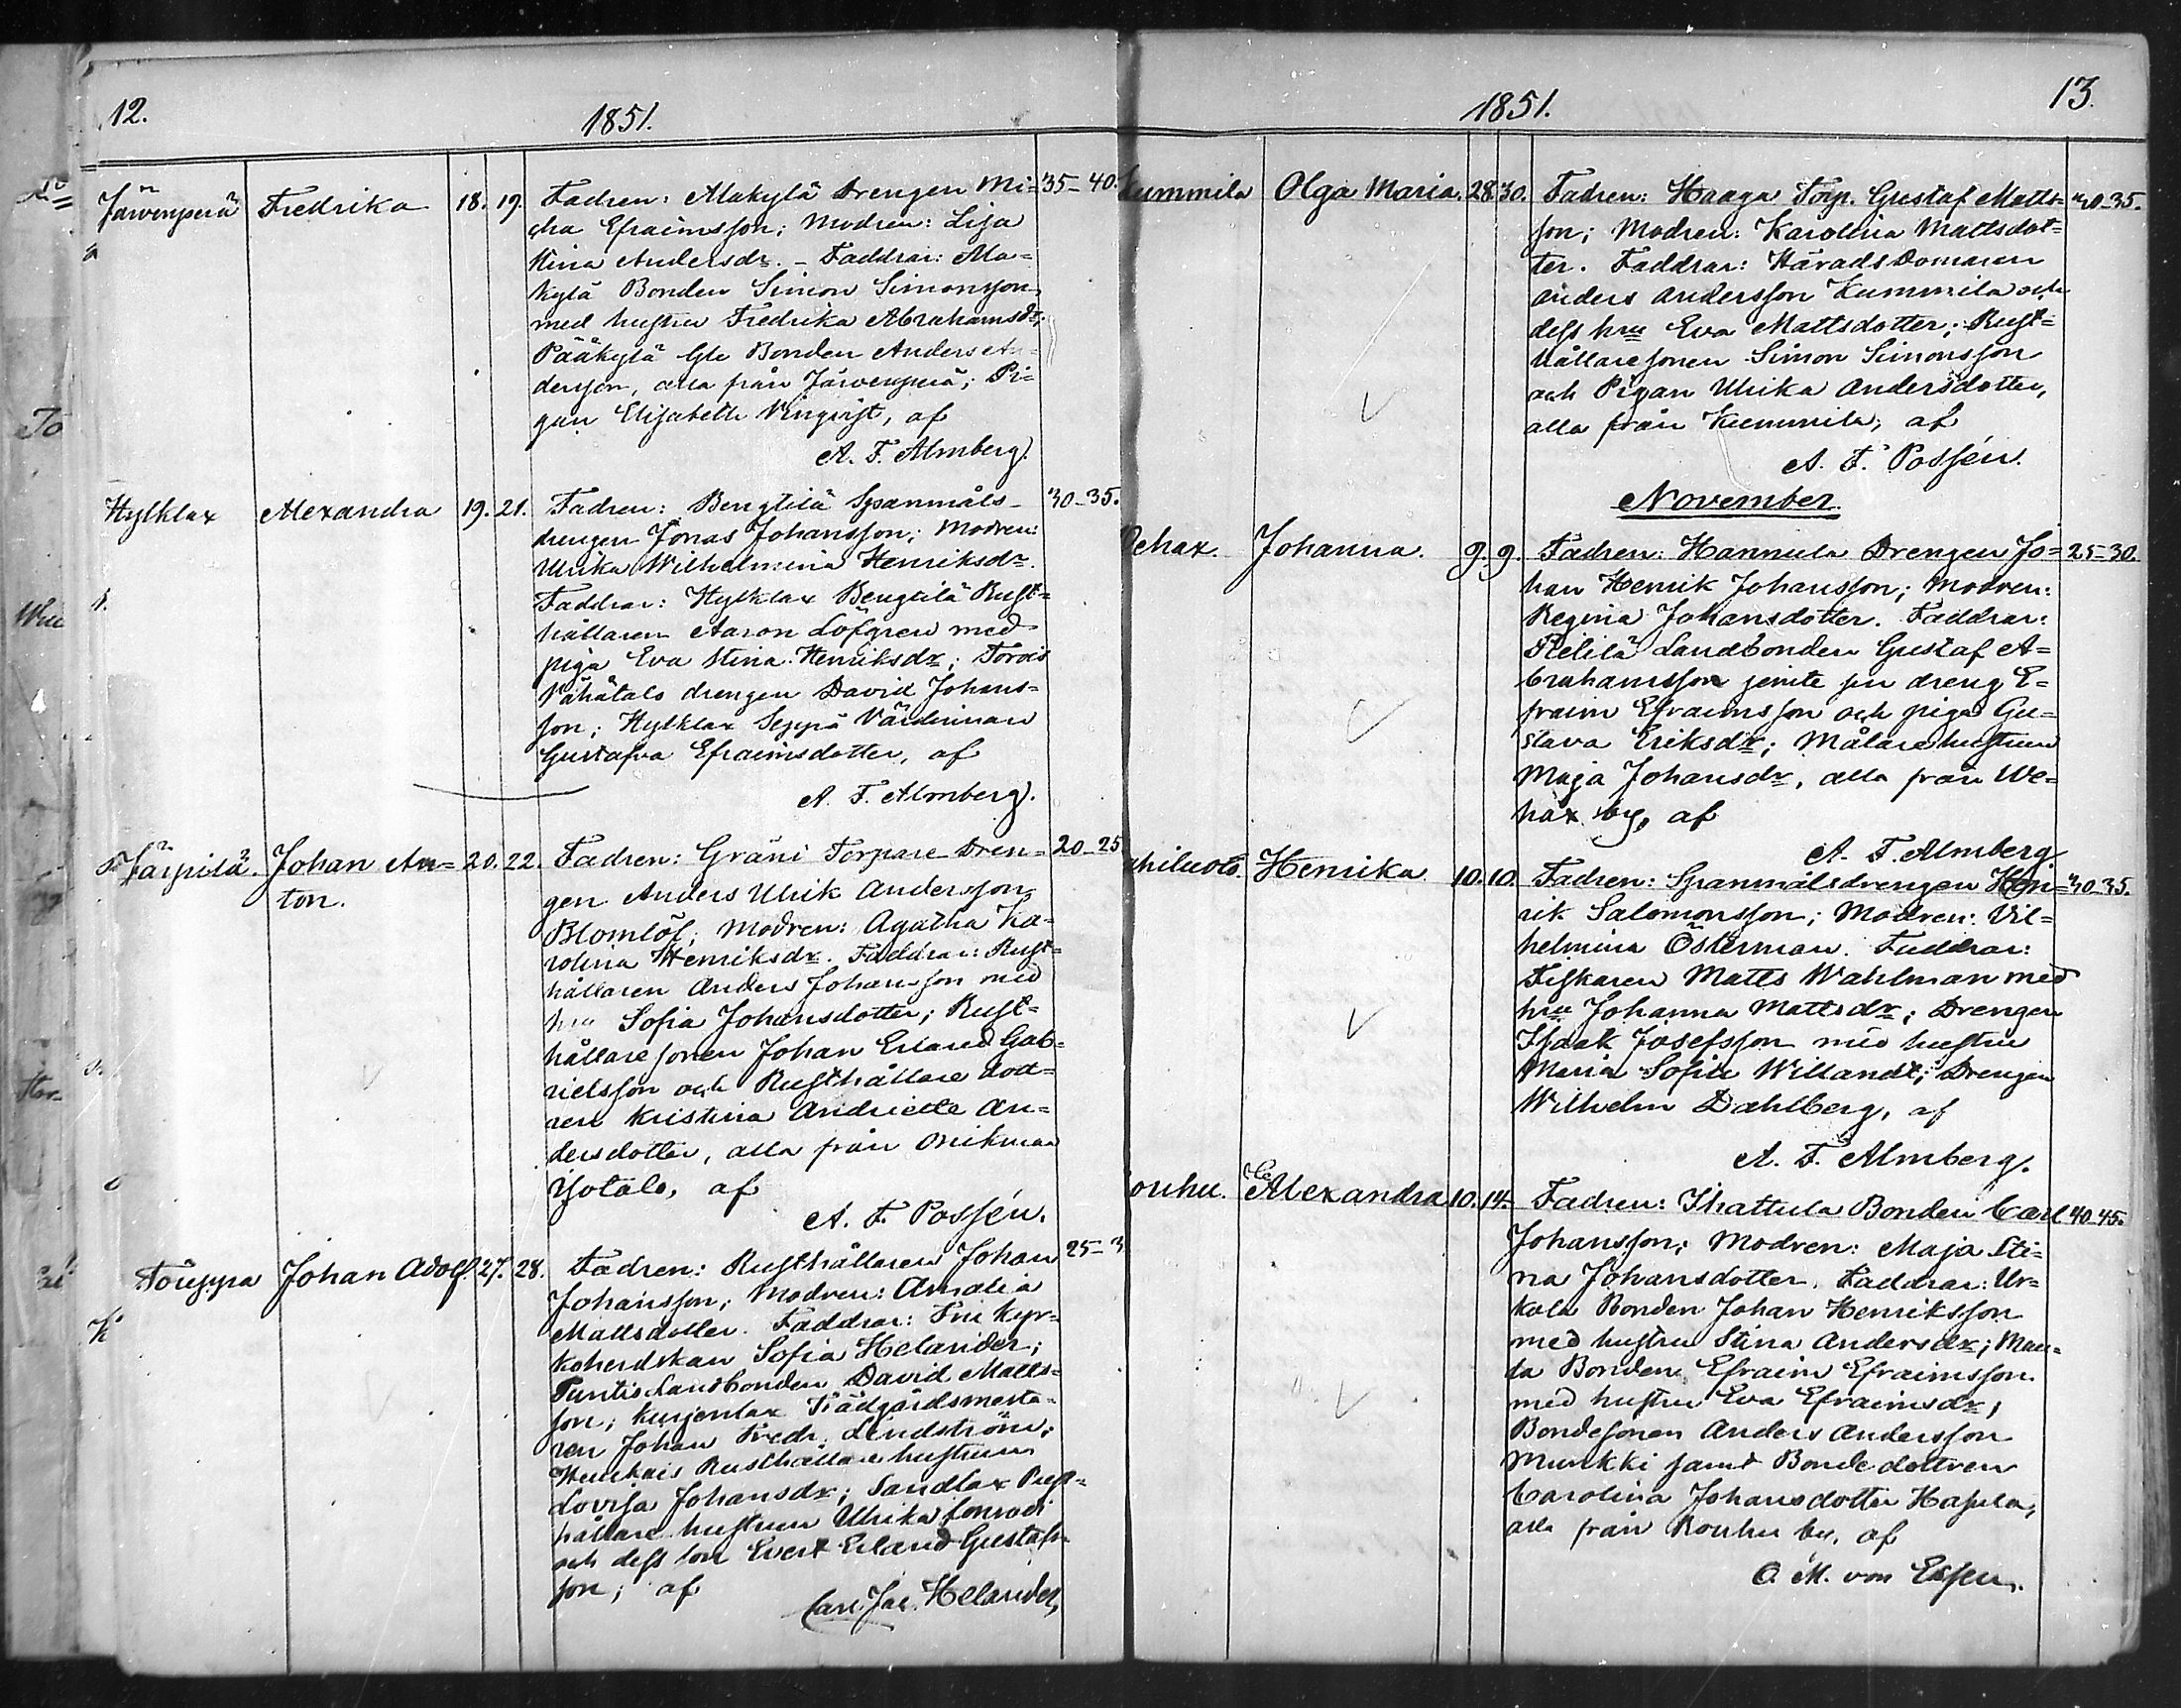 12.
1851.
Järvenperä Fredrika 18. 19. Fadren: Makylä Drengen Mi= 35-40.
cha Efraimsson; Modren: Lisa
Stina Andersdr. - Faddrar: Ma=
kylä Bonden Simon Simonsson
med hustru Fredrika Abrahamsdr;
Pääkylä Gle Bonden Anders An=
dersson, alla från Järvenperä; Pi=
gan Elisabeth Vinqvist, af
A. F. Almberg.
Hylklax Alexandra 19. 21. Fadren: Bengtilä Spanmåls- 30-35.
drengen Jonas Johansson; Modren:
Ulrika Wilhelmina Henriksdr.
Faddrar: Hylklax Bengtilä Rust=
hållaren Aaron Löfgren med
piga Eva Stina Henriksdr; Torois
Vähätalo drengen David Johans=
son; Hylklax Seppä Värdinnan
Gustafva Efraimsdotter, af
A. F. Almberg.
Järpilä. Johan An= 20. 22. Fadren: Gräni Torpare Dren= 20-25
ton. gen Anders Ulrik Andersson
Blomlöf; Modren: Agatha Ka=
rolina Henriksdr. Faddrar: Rust=
hållaren Anders Johansson med
hru Sofia Johansdotter; Rust=
hållaresonen Johan Erland Gab=
rielsson och Rusthållare dot=
ren Kristina Andriette An=
dersdotter, alla från
Isotalo, af
A. F. Possén.
Touppa Johan Adolf. 27. 28. Fadren: Rusthållaren Johan 25-3
Johansson; Modren: Amalia
Mattsdotter. Faddrar: Fru Kyr=
koherdskan Sofia Helander;
Puntis Landbonden David Matts=
son; Kurjenlax Trädgårdsmesta=
ren Johan Fredr. Lindström;
Rusthållarehustrun
Lovisa Johansdr; Sandlax Rust=
hållare hustrun Ulrika
och dess son Evert Erland Gustafs=
son; af
Carl Jac. Helander,
13.
1851.
Kummila Olga Maria. 28. 30. Fadren: Haaga Torp. Gustaf Matts= 30-35.
son; Modren: Karolina Mattsdot=
ter. Faddrar: HäradsDomaren
Anders Andersson Kummila och
dess hru Eva Mattsdotter; Rust=
hållaresonen Simon Simonsson
och Pigan Ulrika Andersdotter,
alla från Kummila, af
A. F. Possén.
November
Vehax. Johanna. 9. 9. Fadren: Hannula Drengen Jo= 25-30.
han Henrik Johansson; Modren:
Regina Johansdotter. Faddrar:
Landbonden Gustaf A=
brahamsson jemte sin dreng E=
fraim Efraimsson och piga Gu=
stava Eriksdr; Målarehustrun
Maja Johansdr, alla från We=
hax by, af
A. F. Almberg.
Henrika 10. 10. Fadren: Spanmålsdrengen Hen= 30-35.
rik Salomonsson; Modren: Vil=
helmina Österman. Faddrar:
Fiskaren Matts Wahlman med
hru Johanna Mattsdr; Drengen
Isaak Josefsson med hustru
Maria Sofia Willandt; Drengen
Wilhelm Dahlberg, af
A. F. Almberg.
Rouhu. Alexandra 10. 14. Fadren: Ihattula Bonden Carl 40-45.
Johansson; Modren: Maja Sti=
na Johansdotter. Faddrar: Ur=
kola Bonden Johan Henriksson
med hustru Stina Andersdr; Mau=
la Bonden Efraim Efraimsson
med hustru Eva Efraimsdr;
Bondesonen Anders Andersson
Munkki samt Bonde dottren
Carolina Johansdotter
alla från Rouhu by, af
O. M. von Essen.